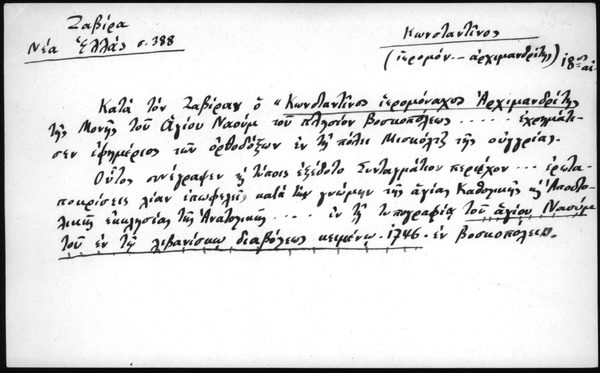 Ζαβίρα
Νέα Ἑλλάς σ. 388
Κωνσταντῖνος
(ἱερομόν. – ἀρχιμανδρίτης) 18ος αἰ.
Κατὰ τὸν Ζαβίραν ὁ "Κωνσταντῖνος ἱερομόναχος Ἀρχιμανδρίτης
τῆς Μονῆς τοῦ Ἁγίου Ναούμ τοῦ πλησίον Βοσκοπόλεως ..... ἐχρημάτι-
σεν ἐφημέριος τῶν ὀρθοδόξων ἐν τῇ πόλει Μισκόλτζ τῆς οὐγγρίας.
Οὗτος συνέγραψεν καὶ τύποις ἐξέδοτο Συνταγμάτιον περιέχον ... ἐρωτα-
ποκρίσεις λίαν ἐπωφελεῖς κατὰ τὴν γνώμην τῆς ἁγίας Καθολικῆς καὶ Ἀποστο-
λικῆς ἐκκλησίας τῆς Ἀνατολικῆς .... ἐν τῇ τυπογραφίᾳ τοῦ ἁγίου Ναούμ
τοῦ ἐν τῇ λιβανίσκῳ διαβόλεως κειμένῳ. 1746. ἐν Βοσκοπόλει".